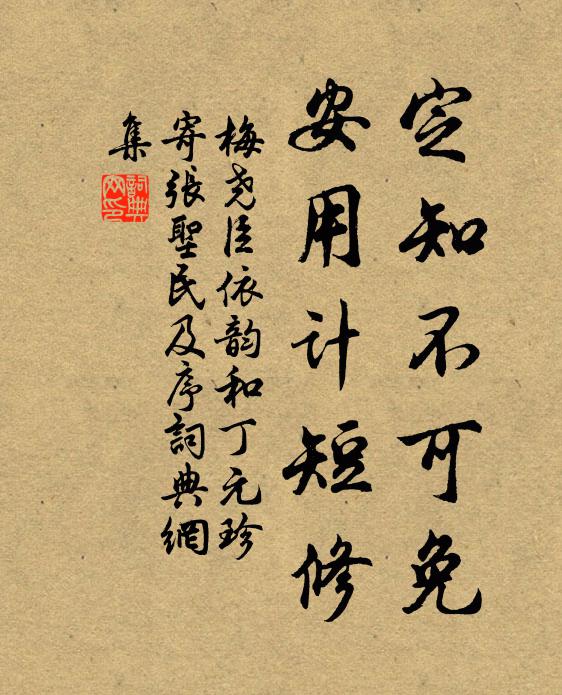 定知不可免
安用计短修
梅尧臣依韵和丁元珍
寄張聖民及序詞典網
集
詞典
网印